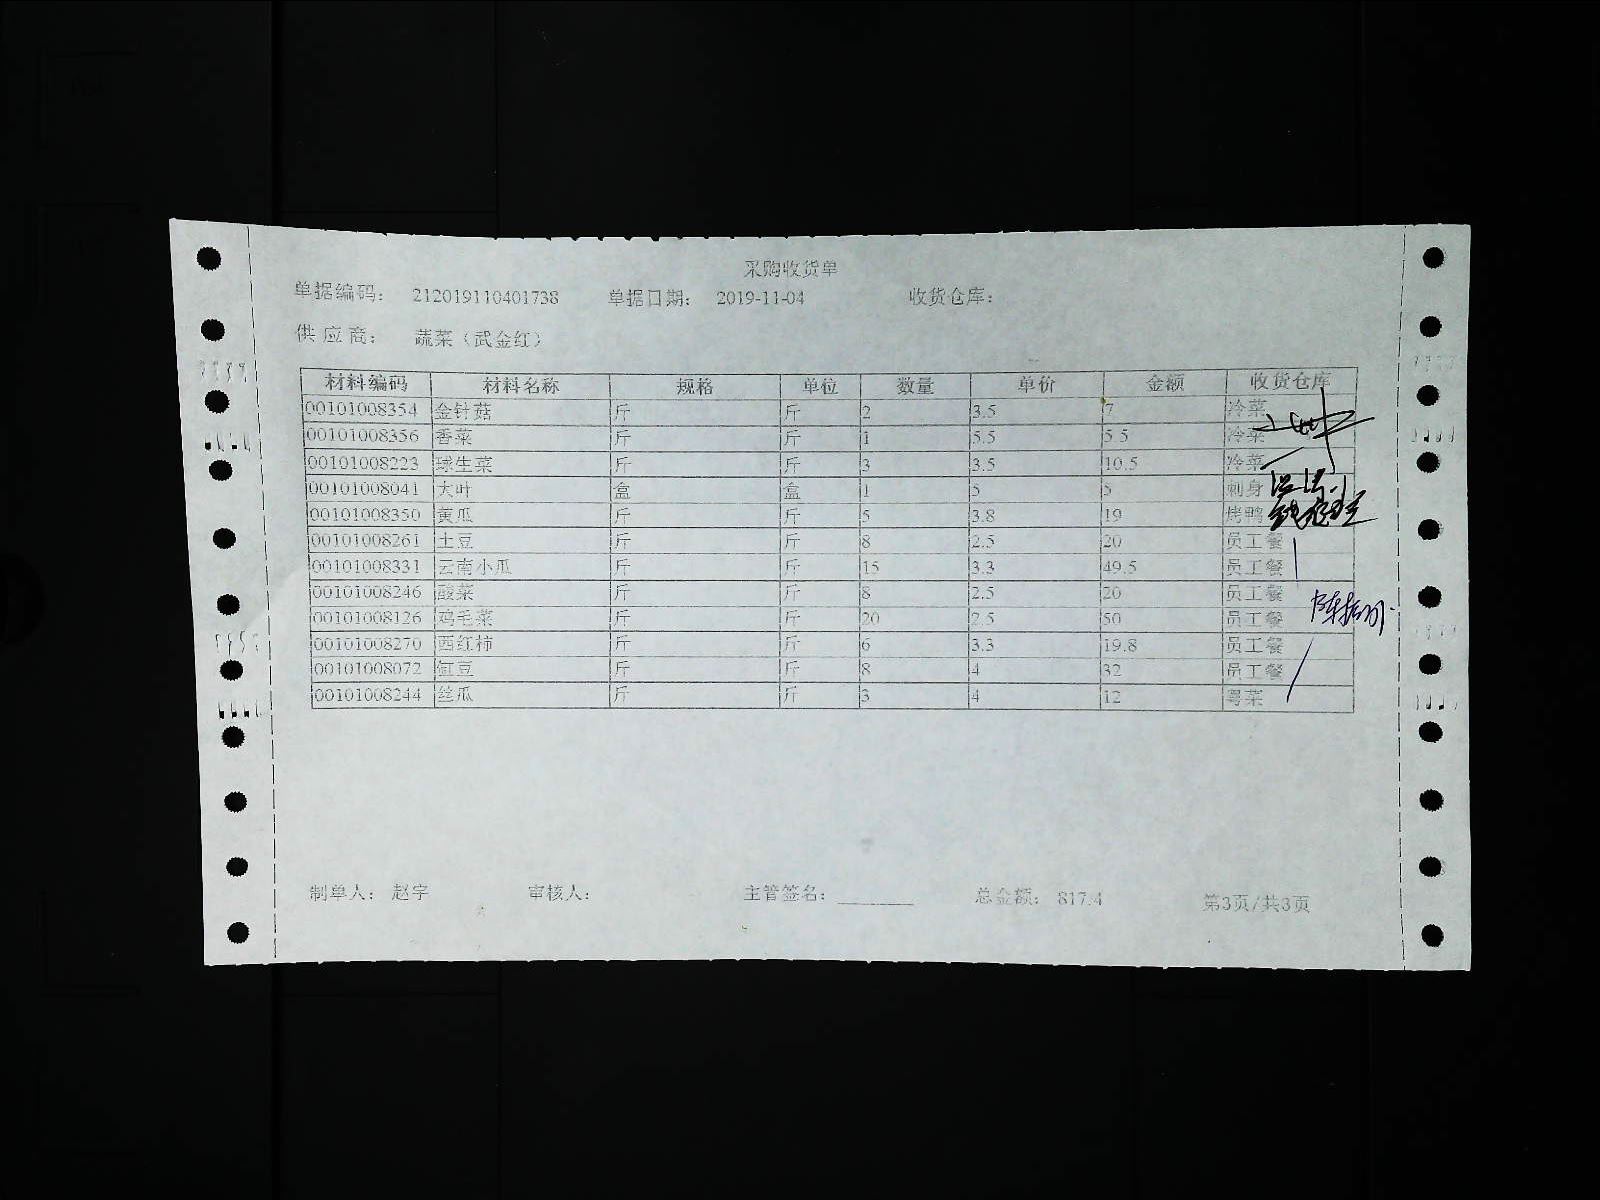 采购收货单
单据编码： 212019110401738 单据日期： 2019-11-04 收货仓库：
供 应 商： 蔬菜（武金红）
材料编码 材料名称 规格 单位 数量 单价 金额 收货仓库
00101008354 金针菇 斤 斤 2 3.5 7 冷菜
00101008356 香菜 斤 斤 1 5.5 5.5 冷菜
00101008223 球生菜 斤 斤 3 3.5 10.5 冷菜
00101008041 大叶 盒 盒 1 5 5 刺身
00101008350 黄瓜 斤 斤 5 3.8 19 烤鸭
00101008261 土豆 斤 斤 8 2.5 20 员工餐
00101008331 云南小瓜 斤 斤 15 3.3 49.5 员工餐
00101008246 酸菜 斤 斤 8 2.5 20 员工餐
00101008126 鸡毛菜 斤 斤 20 2.5 50 员工餐
00101008270 西红柿 斤 斤 6 3.3 19.8 员工餐
00101008072 缸豆 斤 斤 8 4 32 员工餐
00101008244 丝瓜 斤 斤 3 4 12 粤菜
制单人： 赵宇 审核人： 主管签名： 总金额： 817.4 第3页/共3页